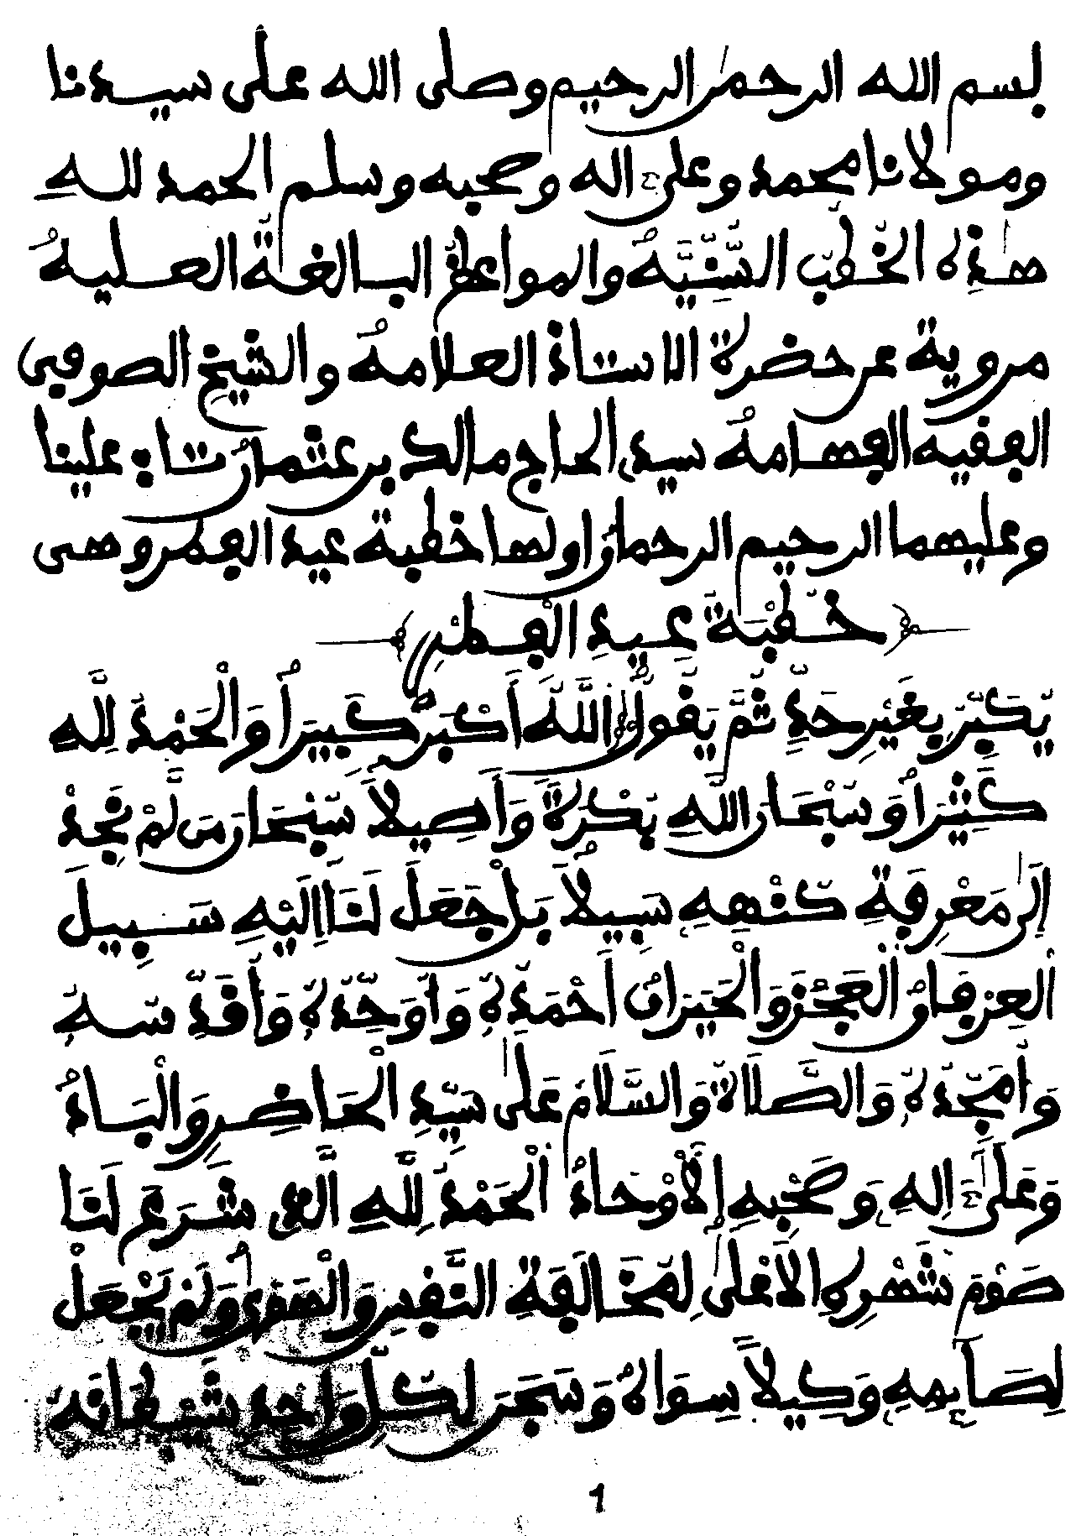 بسم الله الرحمن الرحيم وصلى الله على سيدنا
ومولانا محمد وعلى اله وصحبه وسلم الحمد لله
هذه الخُطَب السَّنِيَّةُ والمواعظ البالغة العليةُ
مروية عن حضرة الاستاذ العلامةُ والشيخ الصوفي
الفقيه الفهامةُ سيدي الحاج مالك بن عثمان رتاب علينا
وعليهما الرحيم الرحمان اولها خطبة عيد الفطر وهي
خُطْبَةُ عِيدِ الْفِطْرِ
يُكَبِّرُ بِغَيْرِ حَدٍّ ثُمَّ يَقُولُ اللَّهُ أَكْبَرُ كَبِيرًا وَالْحَمْدُ لِلَّهِ
كَثِيرًا وَسُبْحَانَ اللَّهِ بُكْرَةً وَأَصِيلًا سُبْحَانَ مَنْ لَمْ نَجِدْ
إِلَى مَعْرِفَةِ كُنْهِهِ سَبِيلًا بَلْ جَعَلَ لَنَا إِلَيْهِ سَبِيلَ
الْعِرْفَانِ الْعَجْزَ وَالْحَيَرَانَ أَحْمَدُهُ وَأُوَحِّدُهُ وَأُقَدِّسُهُ
وَأُمَجِّدُهُ وَالصَّلَاةُ وَالسَّلَامُ عَلَى سَيِّدِ الْحَاضِرِ وَالْبَادِ
وَعَلَى الِهِ وَصَحْبِهِ الْأَوْحَادُ الْحَمْدُ لِلَّهِ الَّذِي شَرَعَ لَنَا
صَوْمَ شَهْرِهِ الْأَعْلَى لِمُخَالَفَةِ النَّفْسِ وَالْهَوَى وَلَمْ يَجْعَلْ
لِصَائِمِهِ وَكِيلًا سِوَاهُ وَسَجَنَ لِكُلِّ وَاحِدٍ شَيْطَانَهُ
1